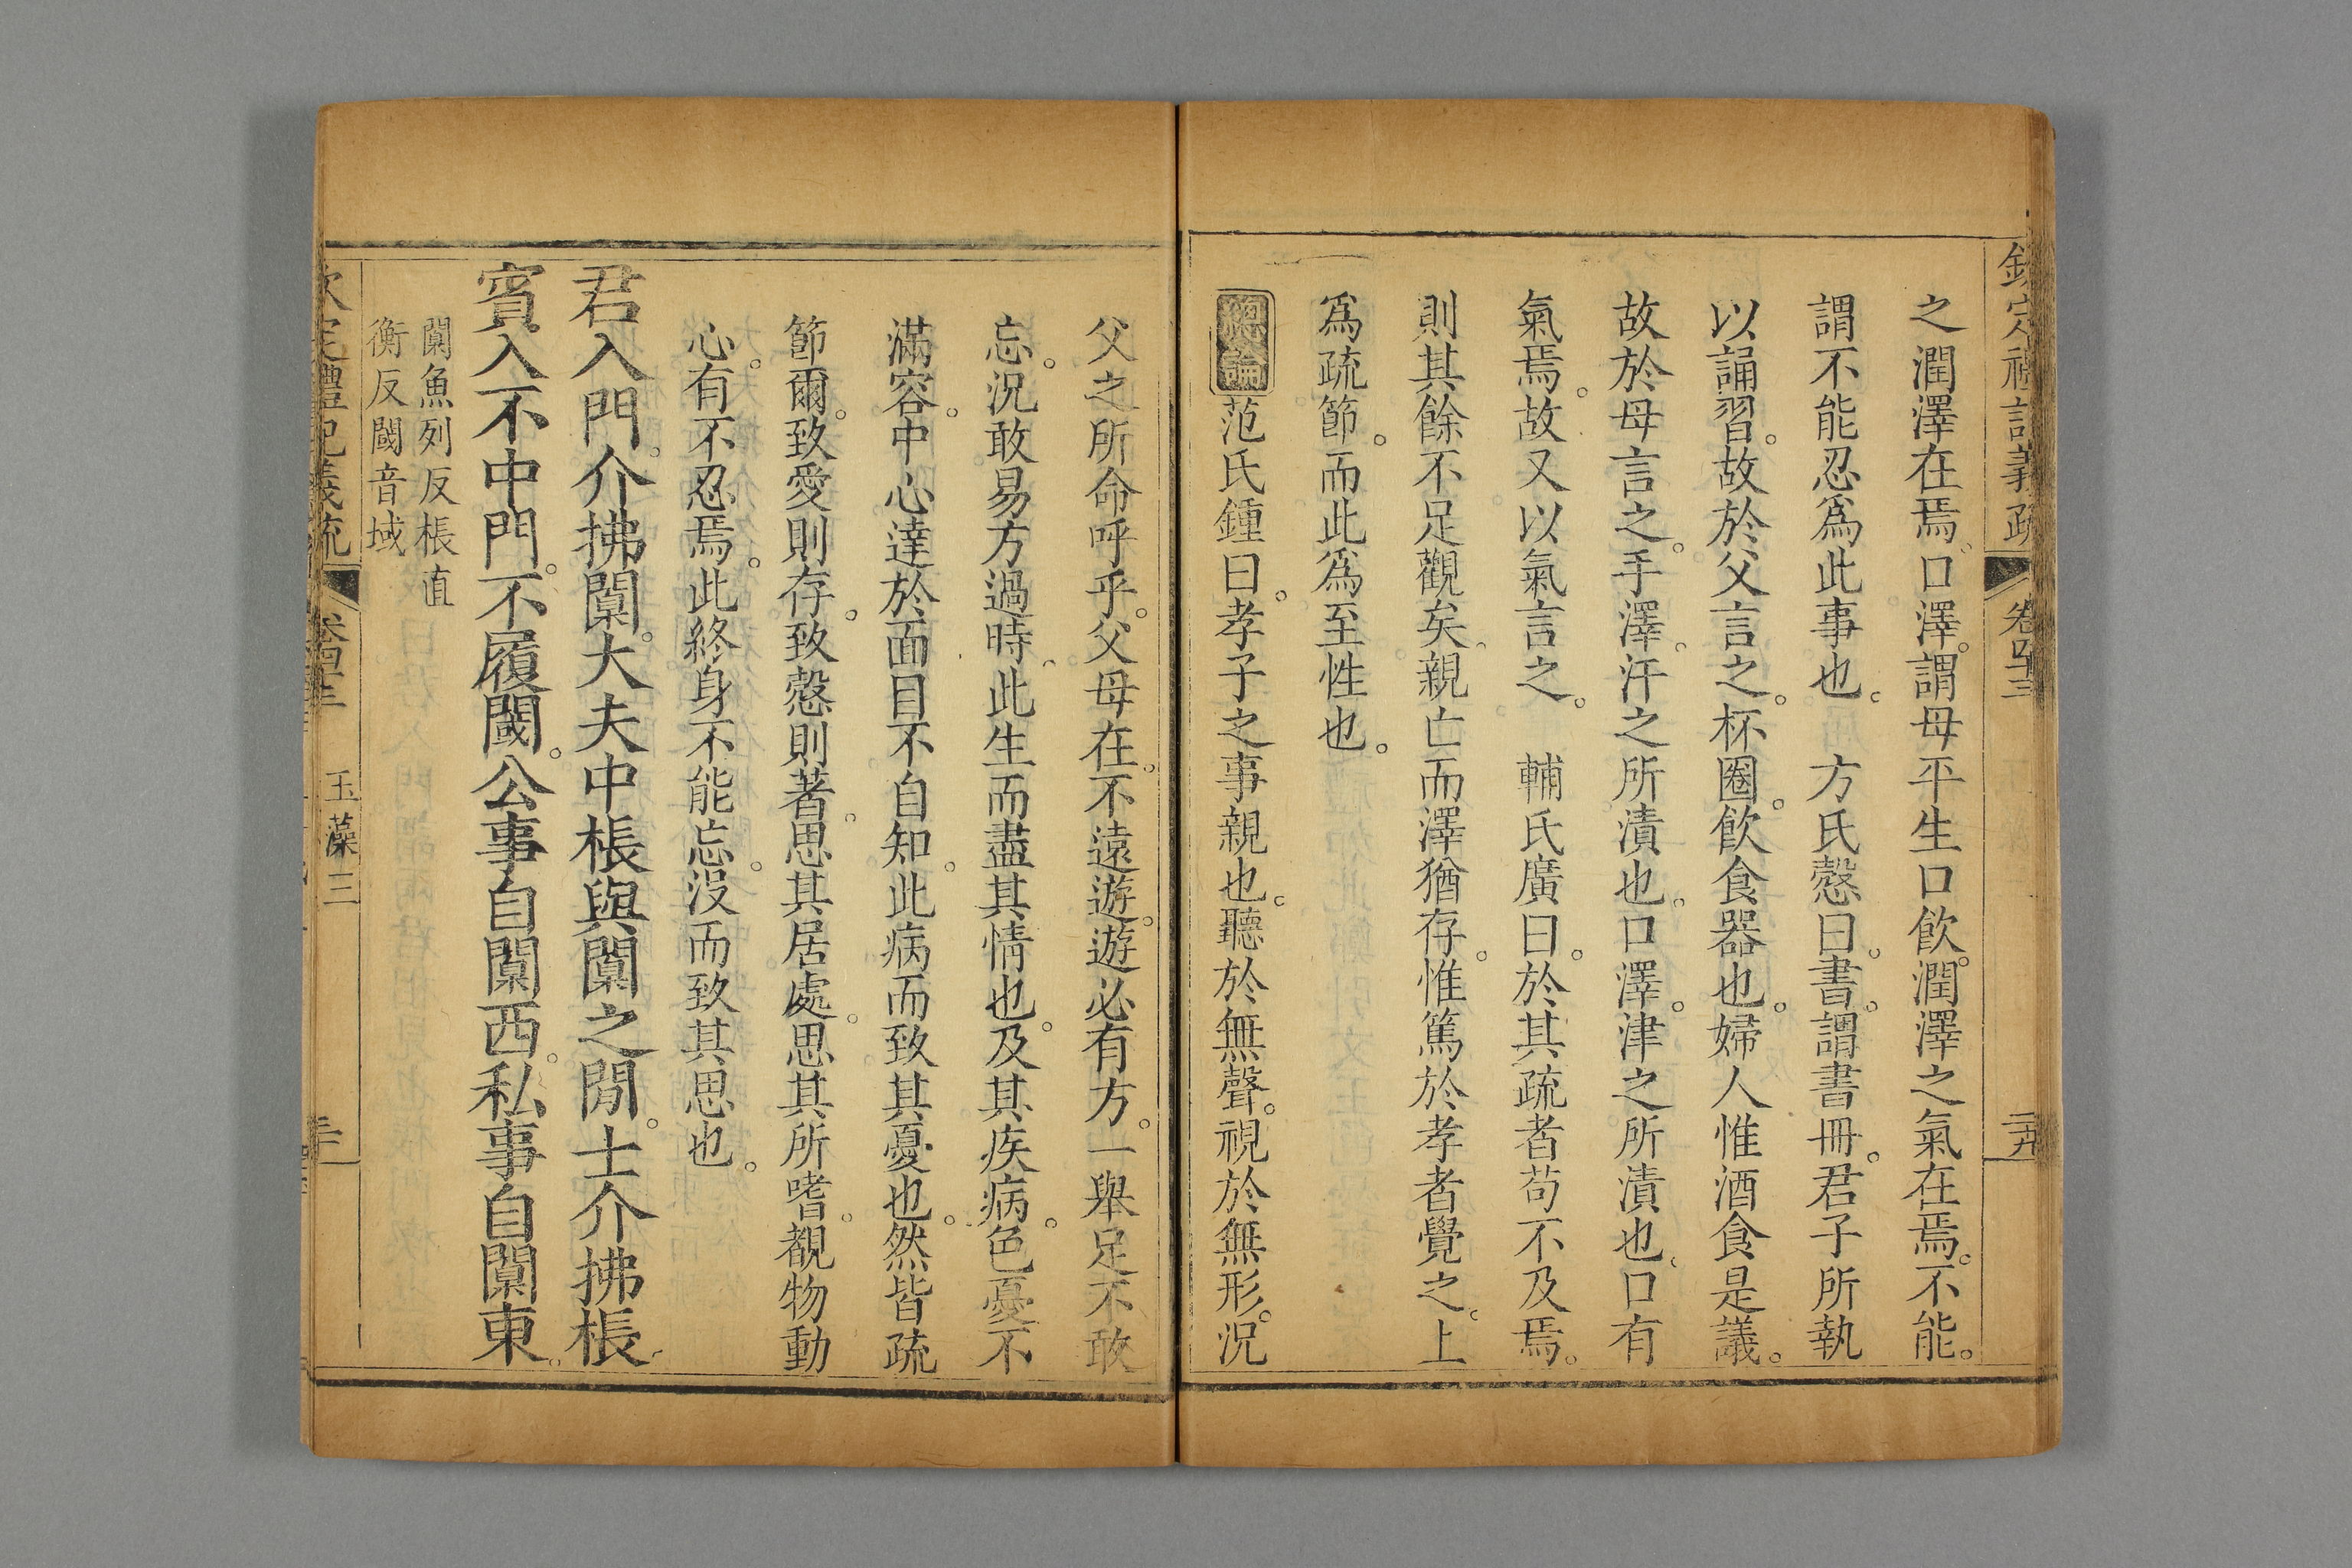 欽定禮記義疏 卷四十三 二十九
之潤澤在焉口澤。謂母平生口飲。潤澤之氣在焉。不能。
謂不能忍為此事也。 方氏慤曰。書。謂書冊。君子所執
以誦習。故於父言之。杯圈。飲食器也。婦人惟酒食是議。
故於母言之。手澤。汗之所漬也。口澤。津之所漬也。口有
氣焉。故又以氣言之。 輔氏廣曰。於其疏者苟不及焉。
則其餘不足觀矣。親亡而澤猶存。惟篤於孝者覺之。上
為疏節。而此為至性也。
總論 范氏鍾曰。孝子之事親也。聽於無聲。視於無形。況
父之所命呼乎。父母在。不遠遊。遊必有方。一舉足不敢
忘。況敢易方過時。此生而盡其情也。及其疾病。色憂不
滿容。中心達於面目不自知。此病而致其憂也。然皆疏
節爾。致愛則存。致慤則著。思其居處。思其所嗜。覩物動
心。有不忍焉。此終身不能忘。沒而致其思也。
君入門。介拂闑。大夫中棖與闑之閒。士介拂棖。
賓入不中門。不履閾。公事自闑西。私事自闑東。
闑魚列反棖直
衡反閾音域
欽定禮記義疏 卷四十三 玉藻三 三十